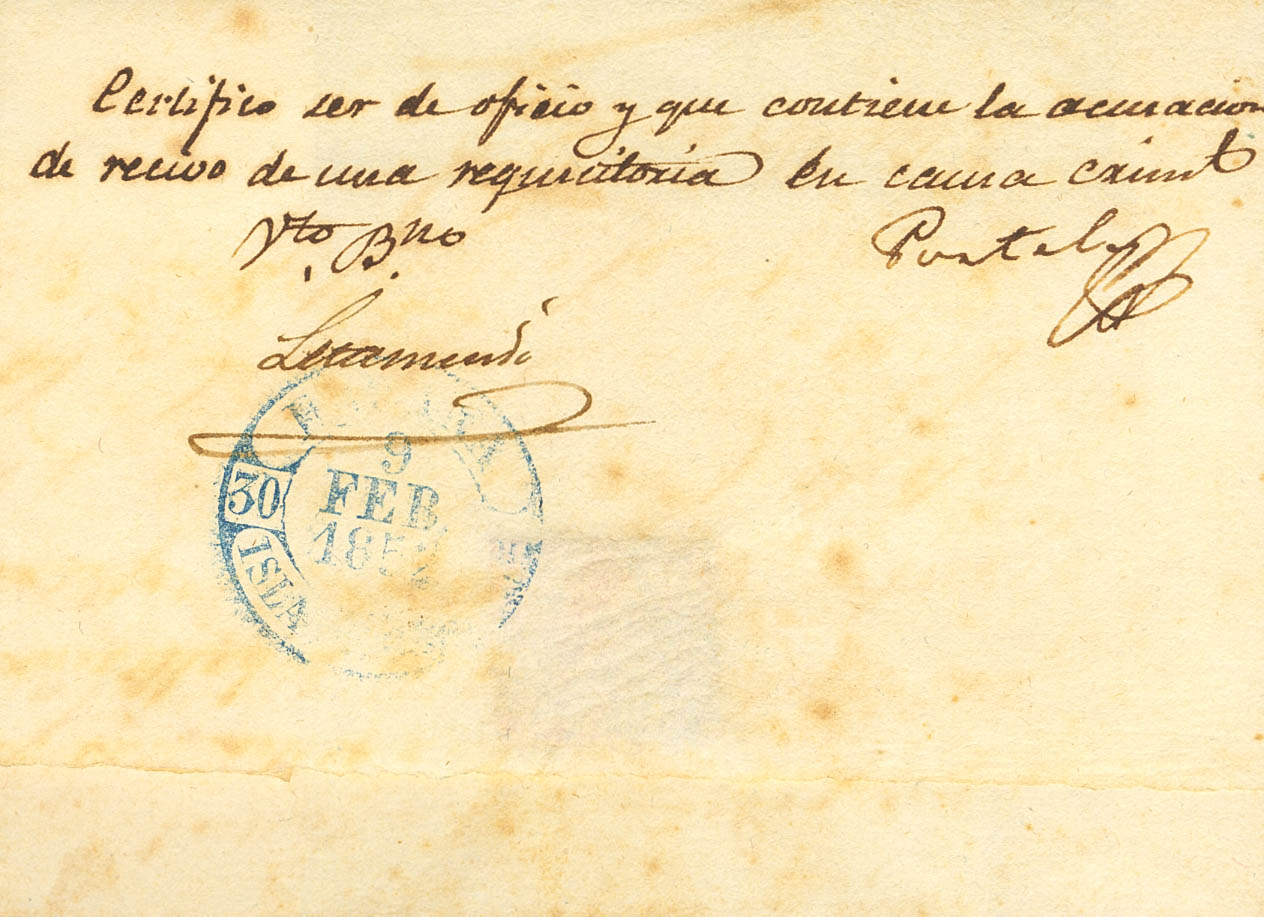 Certifico ser de oficio y que contiene la acusacion
de recivo de una requisitoria en causa criml
Vto Bno
Portel
Letamendi
9
FEB.
185
30
ISLA